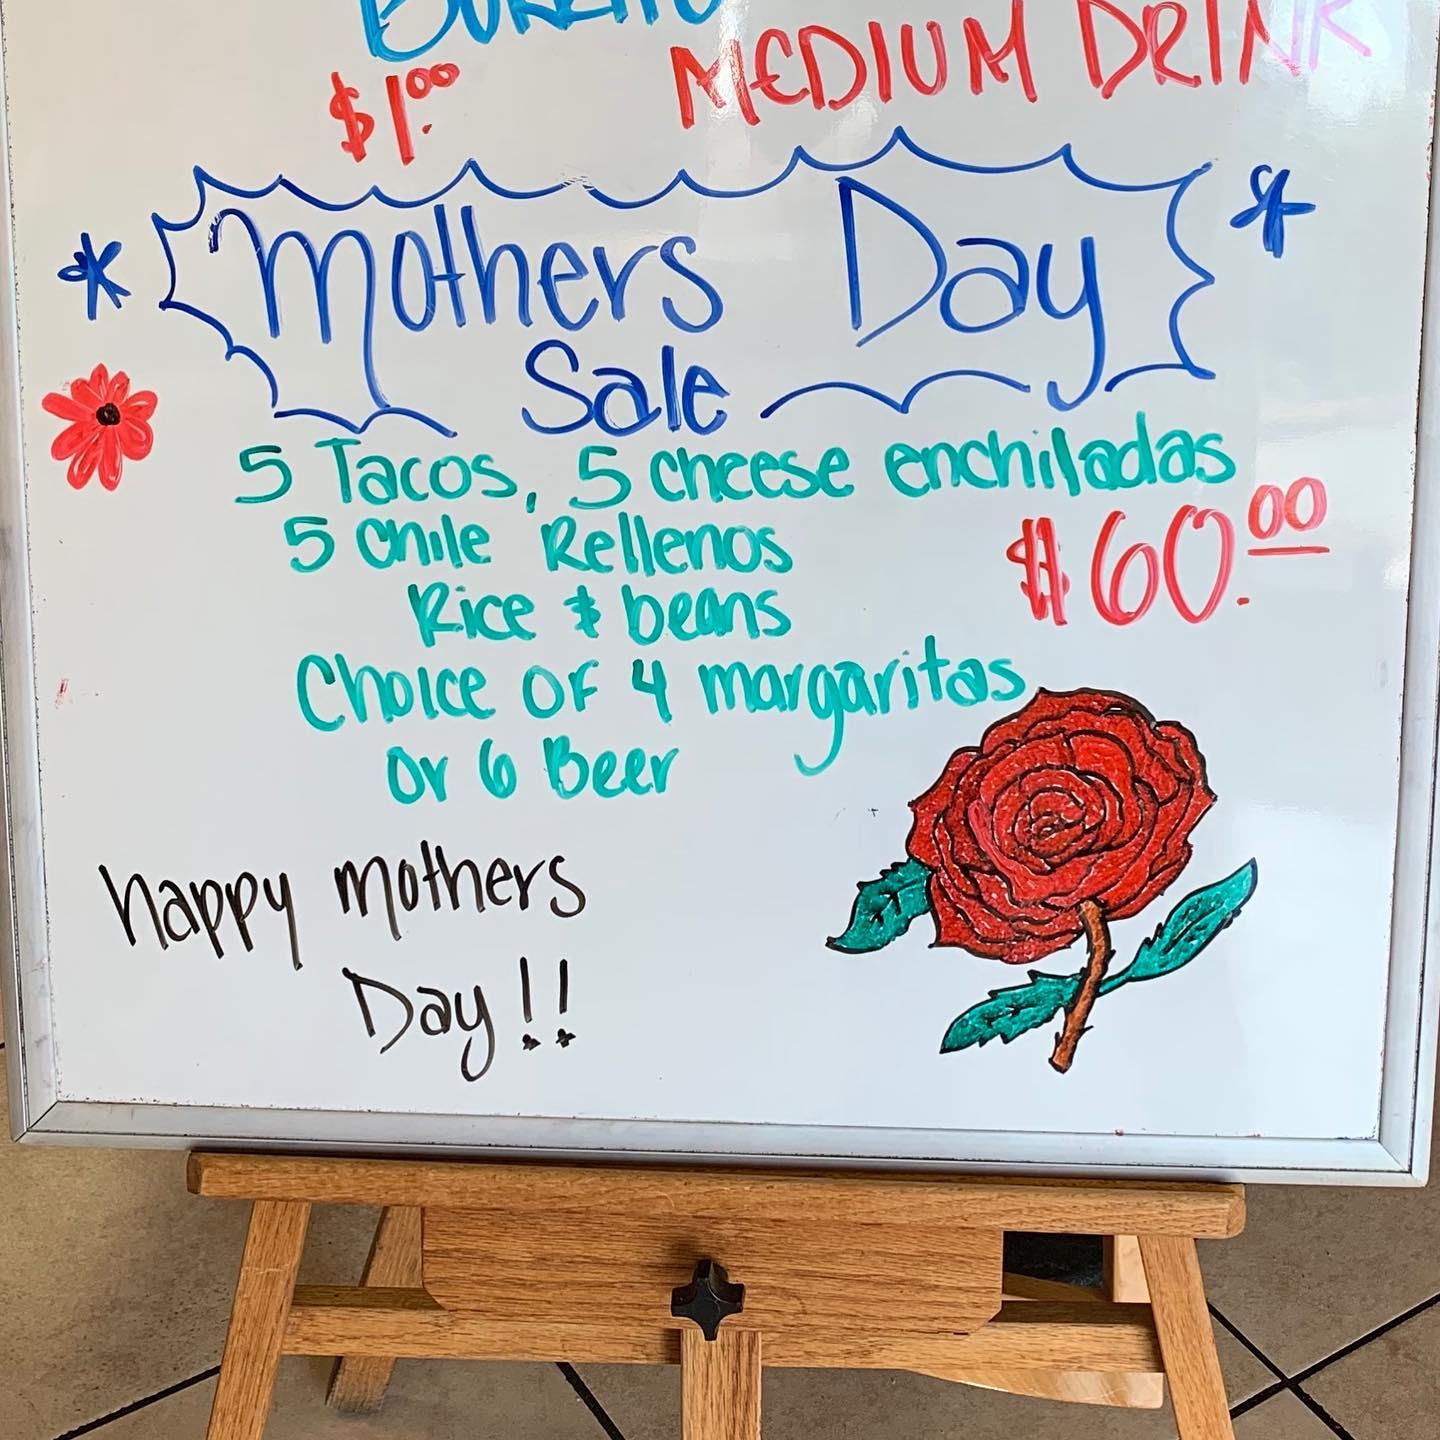 BURRITO
$1.00
MEDIUM DRINK
Mothers Day
Sale
5 Tacos, 5 cheese enchiladas
5 Chile Rellenos
$60.00
Rice & beans
Choice OF 4 margaritas
or 6 Beer
happy mothers
Day!!